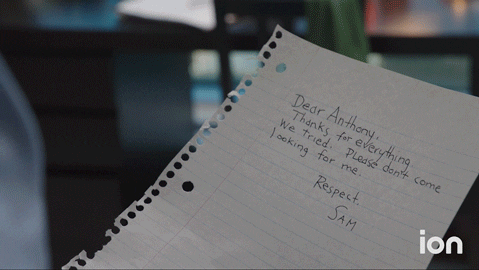 Dear Anthony,
Thanks for everything
We tried. Please don't come
looking for me.
Respect.
SAM
ion